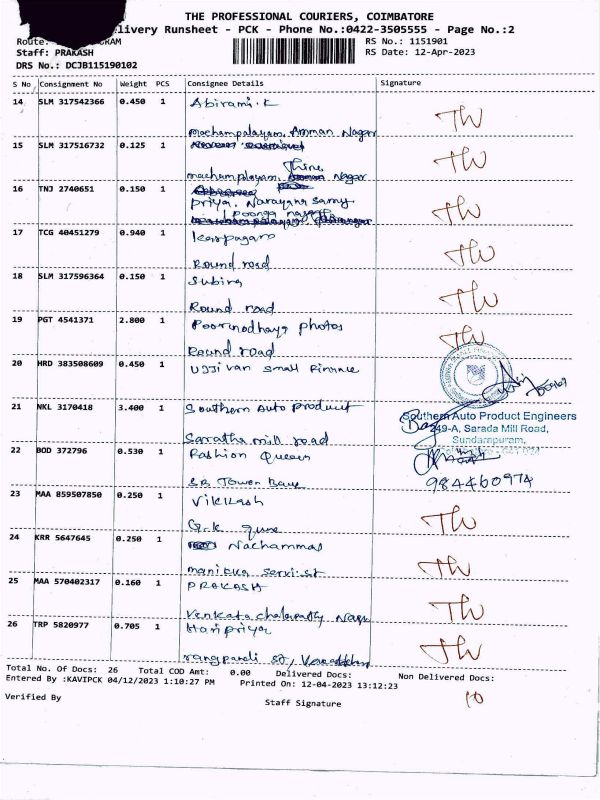 THE PROFESSIONAL COURIERS, COIMBATORE
livery Runsheet - PCK - Phone No.:0422-3505555 - Page No.:2
Route: RAM
Staff: PRAKASH
DRS No.: DCJB115190102
RS No.: 1151901
RS Date: 12-Apr-2023
S No Consignment No Weight PCS Consignee Details Signature
14 SLM 317542366 0.450 1 Abirami.K
machampalayam, Amman Nagar
15 SLM 317516732 0.125 1
machampalayam, Nagar
16 TNJ 2740651 0.150 1
priya. Narayana samy
poonga nagar
17 TCG 40451279 0.940 1 Karpagam
Round road
18 SLM 317596364 0.150 1 Subira
Round road
19 PGT 4541371 2.800 1 Poornodhaya photos
Round road
20 HRD 383508609 0.450 1 Ujjivan small Finance
21 NKL 3170418 3.400 1 Southern Auto product
Saratha mill road
Southern Auto Product Engineers
249-A, Sarada Mill Road,
Sundarapuram,
22 BOD 372796 0.530 1 Fashion Queen
984460974
23 MAA 859507850 0.250 1 Vikilash
G.K
24 KRR 5647645 0.250 1 Nachammas
25 MAA 570402317 0.160 1 PRAKASH
Venkata chalapathy Nagar
26 TRP 5820977 0.705 1 Haripriya
Total No. Of Docs: 26 Total COD Amt: 0.00 Delivered Docs: Non Delivered Docs:
Entered By :KAVIPCK 04/12/2023 1:10:27 PM Printed On: 12-04-2023 13:12:23
10
Verified By Staff Signature